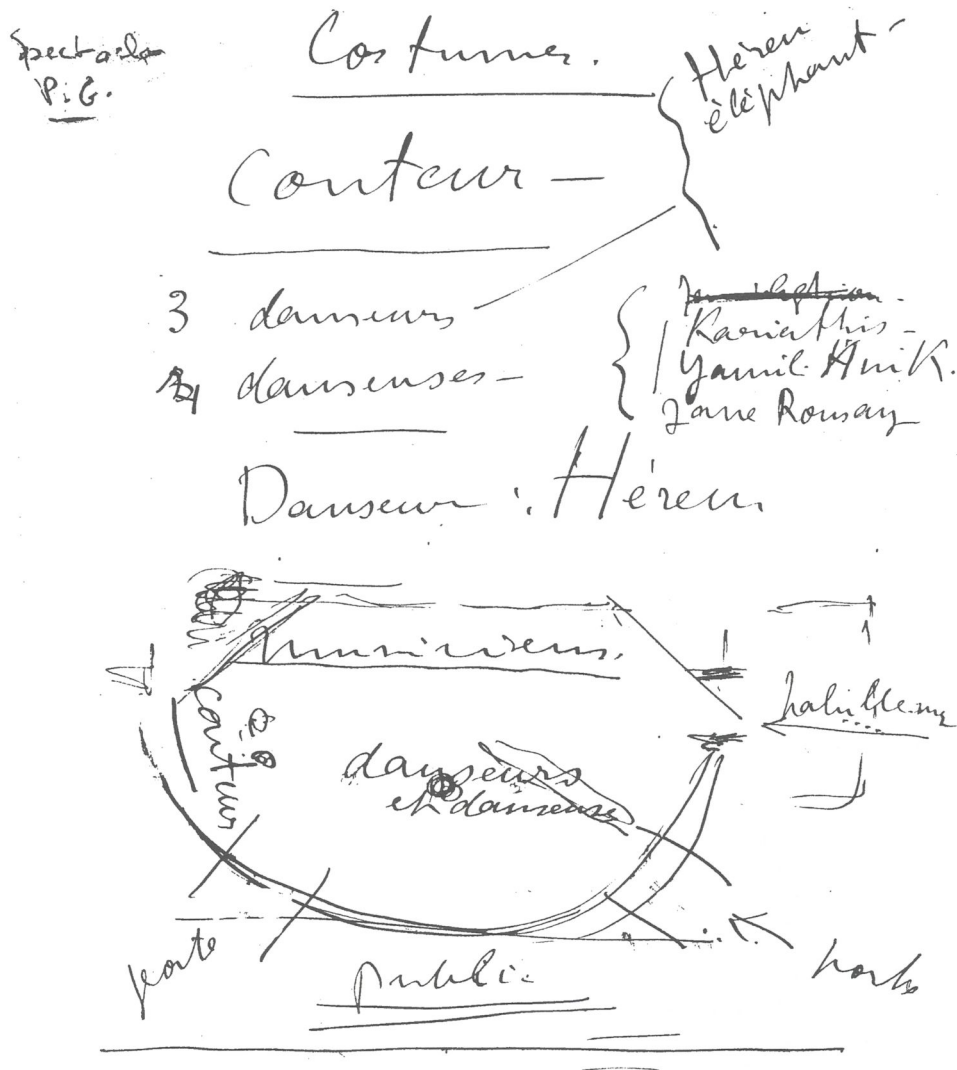 Spectacle
P.G.
Costumes.
Héren
éléphant
Conteur –
3 danseurs
4 danseuses –
Kariathis –
Yamil Anik.
Jane Ronsay
Danseur : Héren.
musiciens.
conteur
habilleuse
danseurs
et danseuses
porte
porte
public